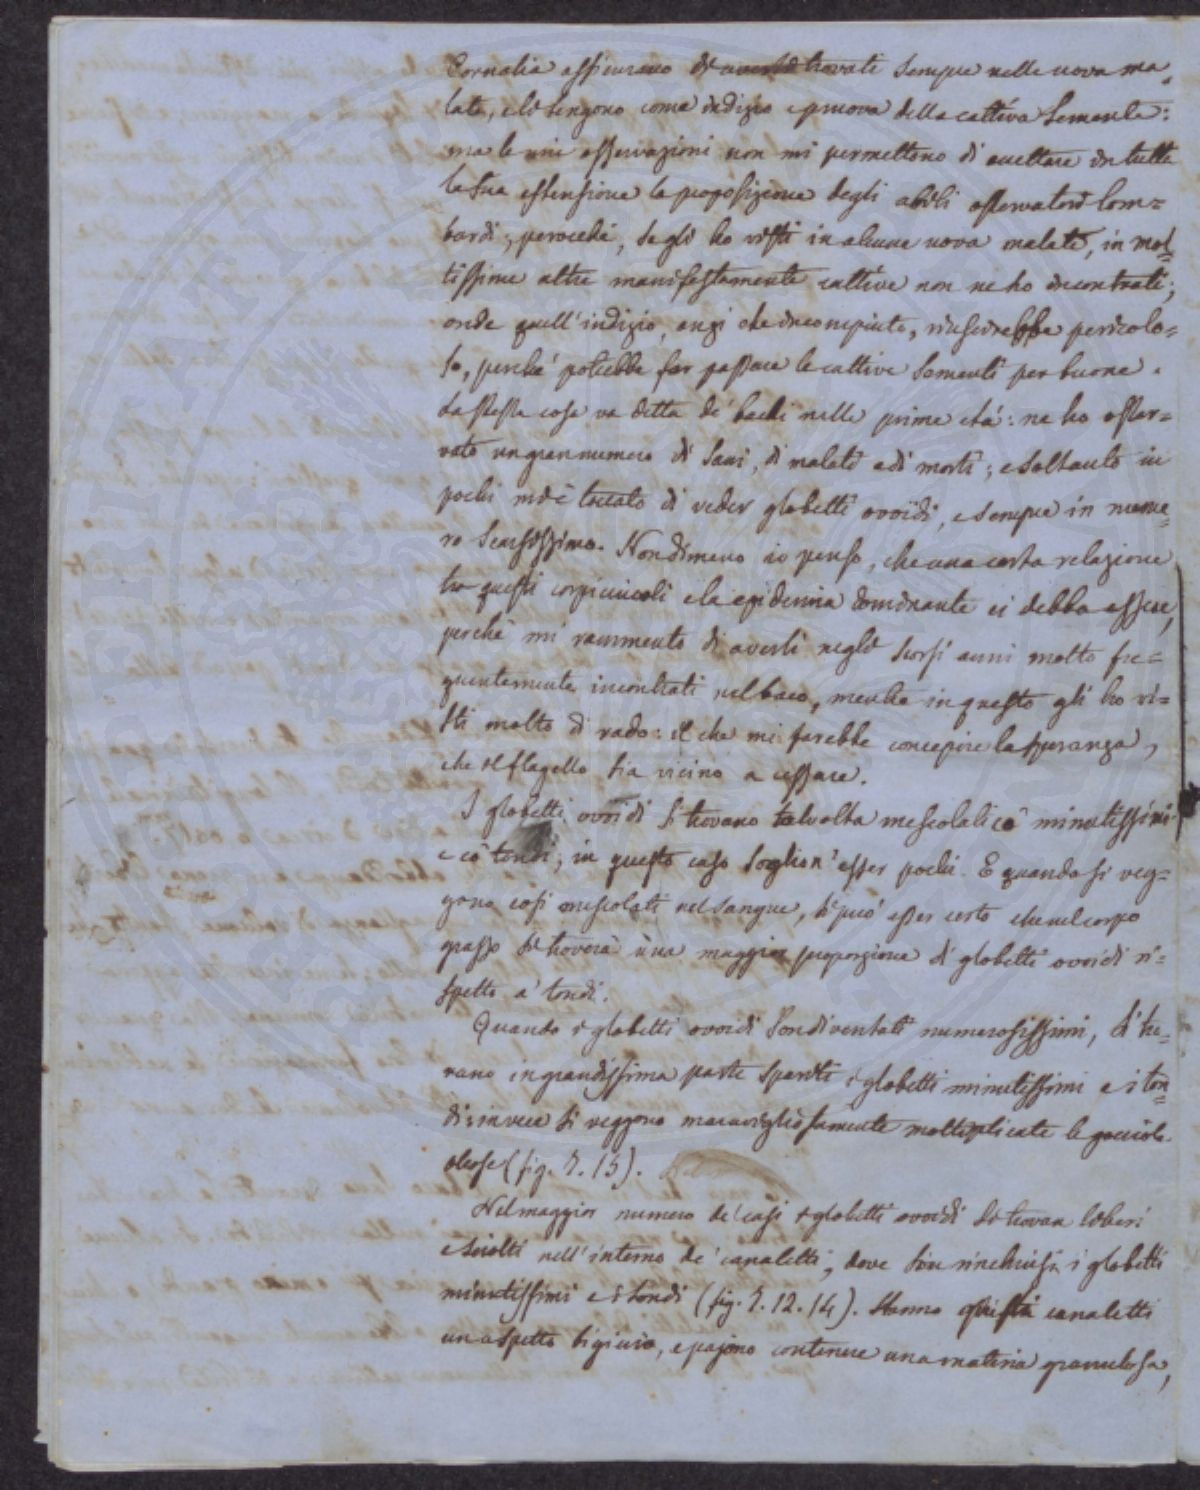 Cornalia assicurano di trovati sempre nelle uova ma-
late, e li tengono come indizio e pruova della cattiva semente:
ma le mie osservazioni non mi permettono di accettare in tutta
la sua estensione la proposizione degli abili osservatori lom=
bardi; perocché, se gli ho visti in alcune uova malate, in mol=
tissime altre manifestamente cattive non ne ho incontrati;
onde quell'indizio, anzi che incompiuto, riuscirebbe pericolo=
so, perché potrebbe far passare le cattive sementi per buone.
La stessa cosa va detta de' bachi nelle prime età: ne ho osser=
vato un gran numero di sani, di malati e di morti; e soltanto in
pochi mi è toccato di veder globetti ovoidi, e sempre in nume=
ro scarsissimo. Nondimeno io penso, che una certa relazione
tra questi corpicciuoli e la epidemia dominante ci debba essere,
perché mi rammento di averli negli scorsi anni molto fre=
quentemente incontrati nel baco, mentre in questo gli ho vi=
sti molto di rado: il che mi farebbe concepire la speranza,
che il flagello sia vicino a cessare.
I globetti ovoidi si trovano talvolta mescolati co' minutissimi
e co' tondi; in questo caso soglion' esser pochi. E quando si veg=
gono così mescolati nel sangue, si può esser certo che nel corpo
grasso si troverà una maggior proporzione di globetti ovoidi ri=
spetto a' tondi.
Quando i globetti ovoidi son diventati numerosissimi, si tro=
vano in grandissima parte spariti i globetti minutissimi e i ton=
di; invece si veggono maravigliosamente moltiplicate le gocciole
oleose (fig. 7. 15).
Nel maggior numero de' casi i globetti ovoidi si trovan liberi
e sciolti nell'interno de' canaletti, dove son rinchiusi i globetti
minutissimi e i tondi (fig. 7. 12. 14). Hanno questi canaletti
un aspetto bigiccio, e pajono contenere una materia granulosa,